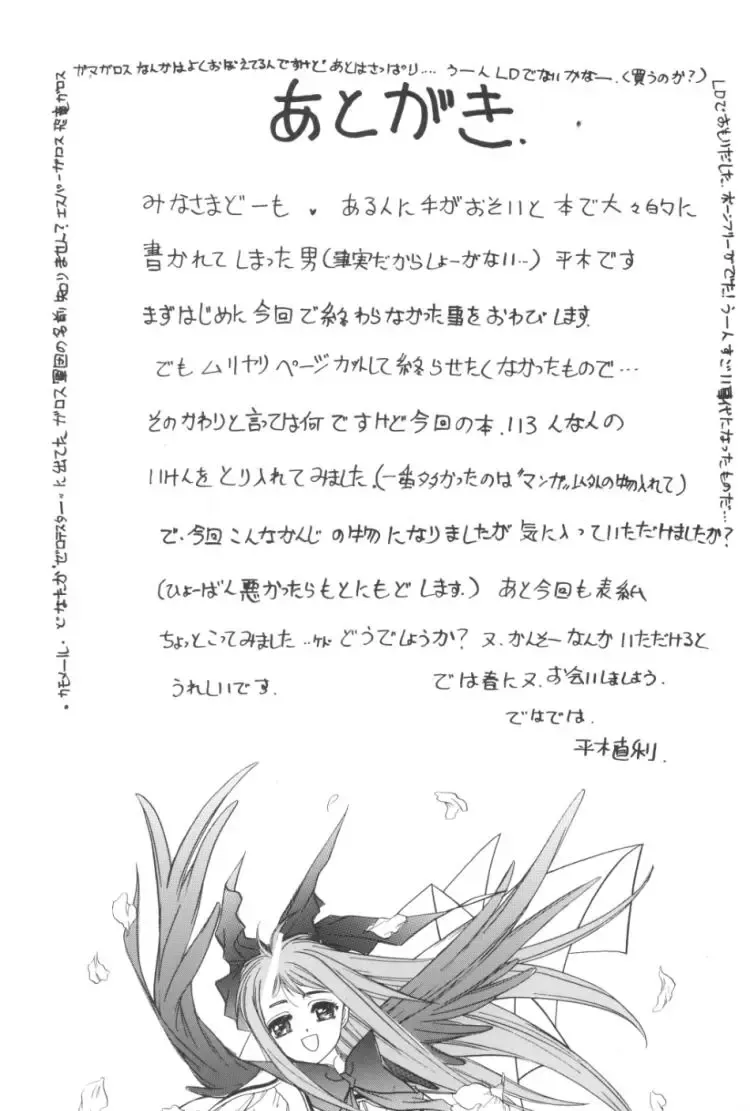 ・カモメール・どなたか"ゼロテスター"に出てたガロス軍団の名前知りません?エスパーガロス恐竜ガロス
ガマガロスなんかはよくおぼえてるんですけど、あとはさっぱり…。うーんLDでないかなー。(買うのか?)
LDでおもいだした。ボーンフリーがでた!うーんすごい事代になったものだ…
あとがき.
みなさまどーも 、 ある人に手がおそいと本で大々的に
書かれてしまった男(事実だからしょーがない…)平木です
まずはじめに今回で終わらなかった事をおわびします。
でもムリヤリページカットして終らせたくなかったもので…
そのかわりと言っては何ですけど今回の本、113人なんの
いけんをとり入れてみました。(一番多かったのは"マンガ"以外の物入れて)
で、今回こんなかんじの物になりましたが気に入っていただけましたか?
(ひょーばん悪かったらもとにもどします。) あと今回も表紙
ちょっとこってみました…ケドどうでしょうか? 又、かんそーなんかいただけると
うれしいです.
では春に又、お会いしましょう.
ではでは.
平木直利.